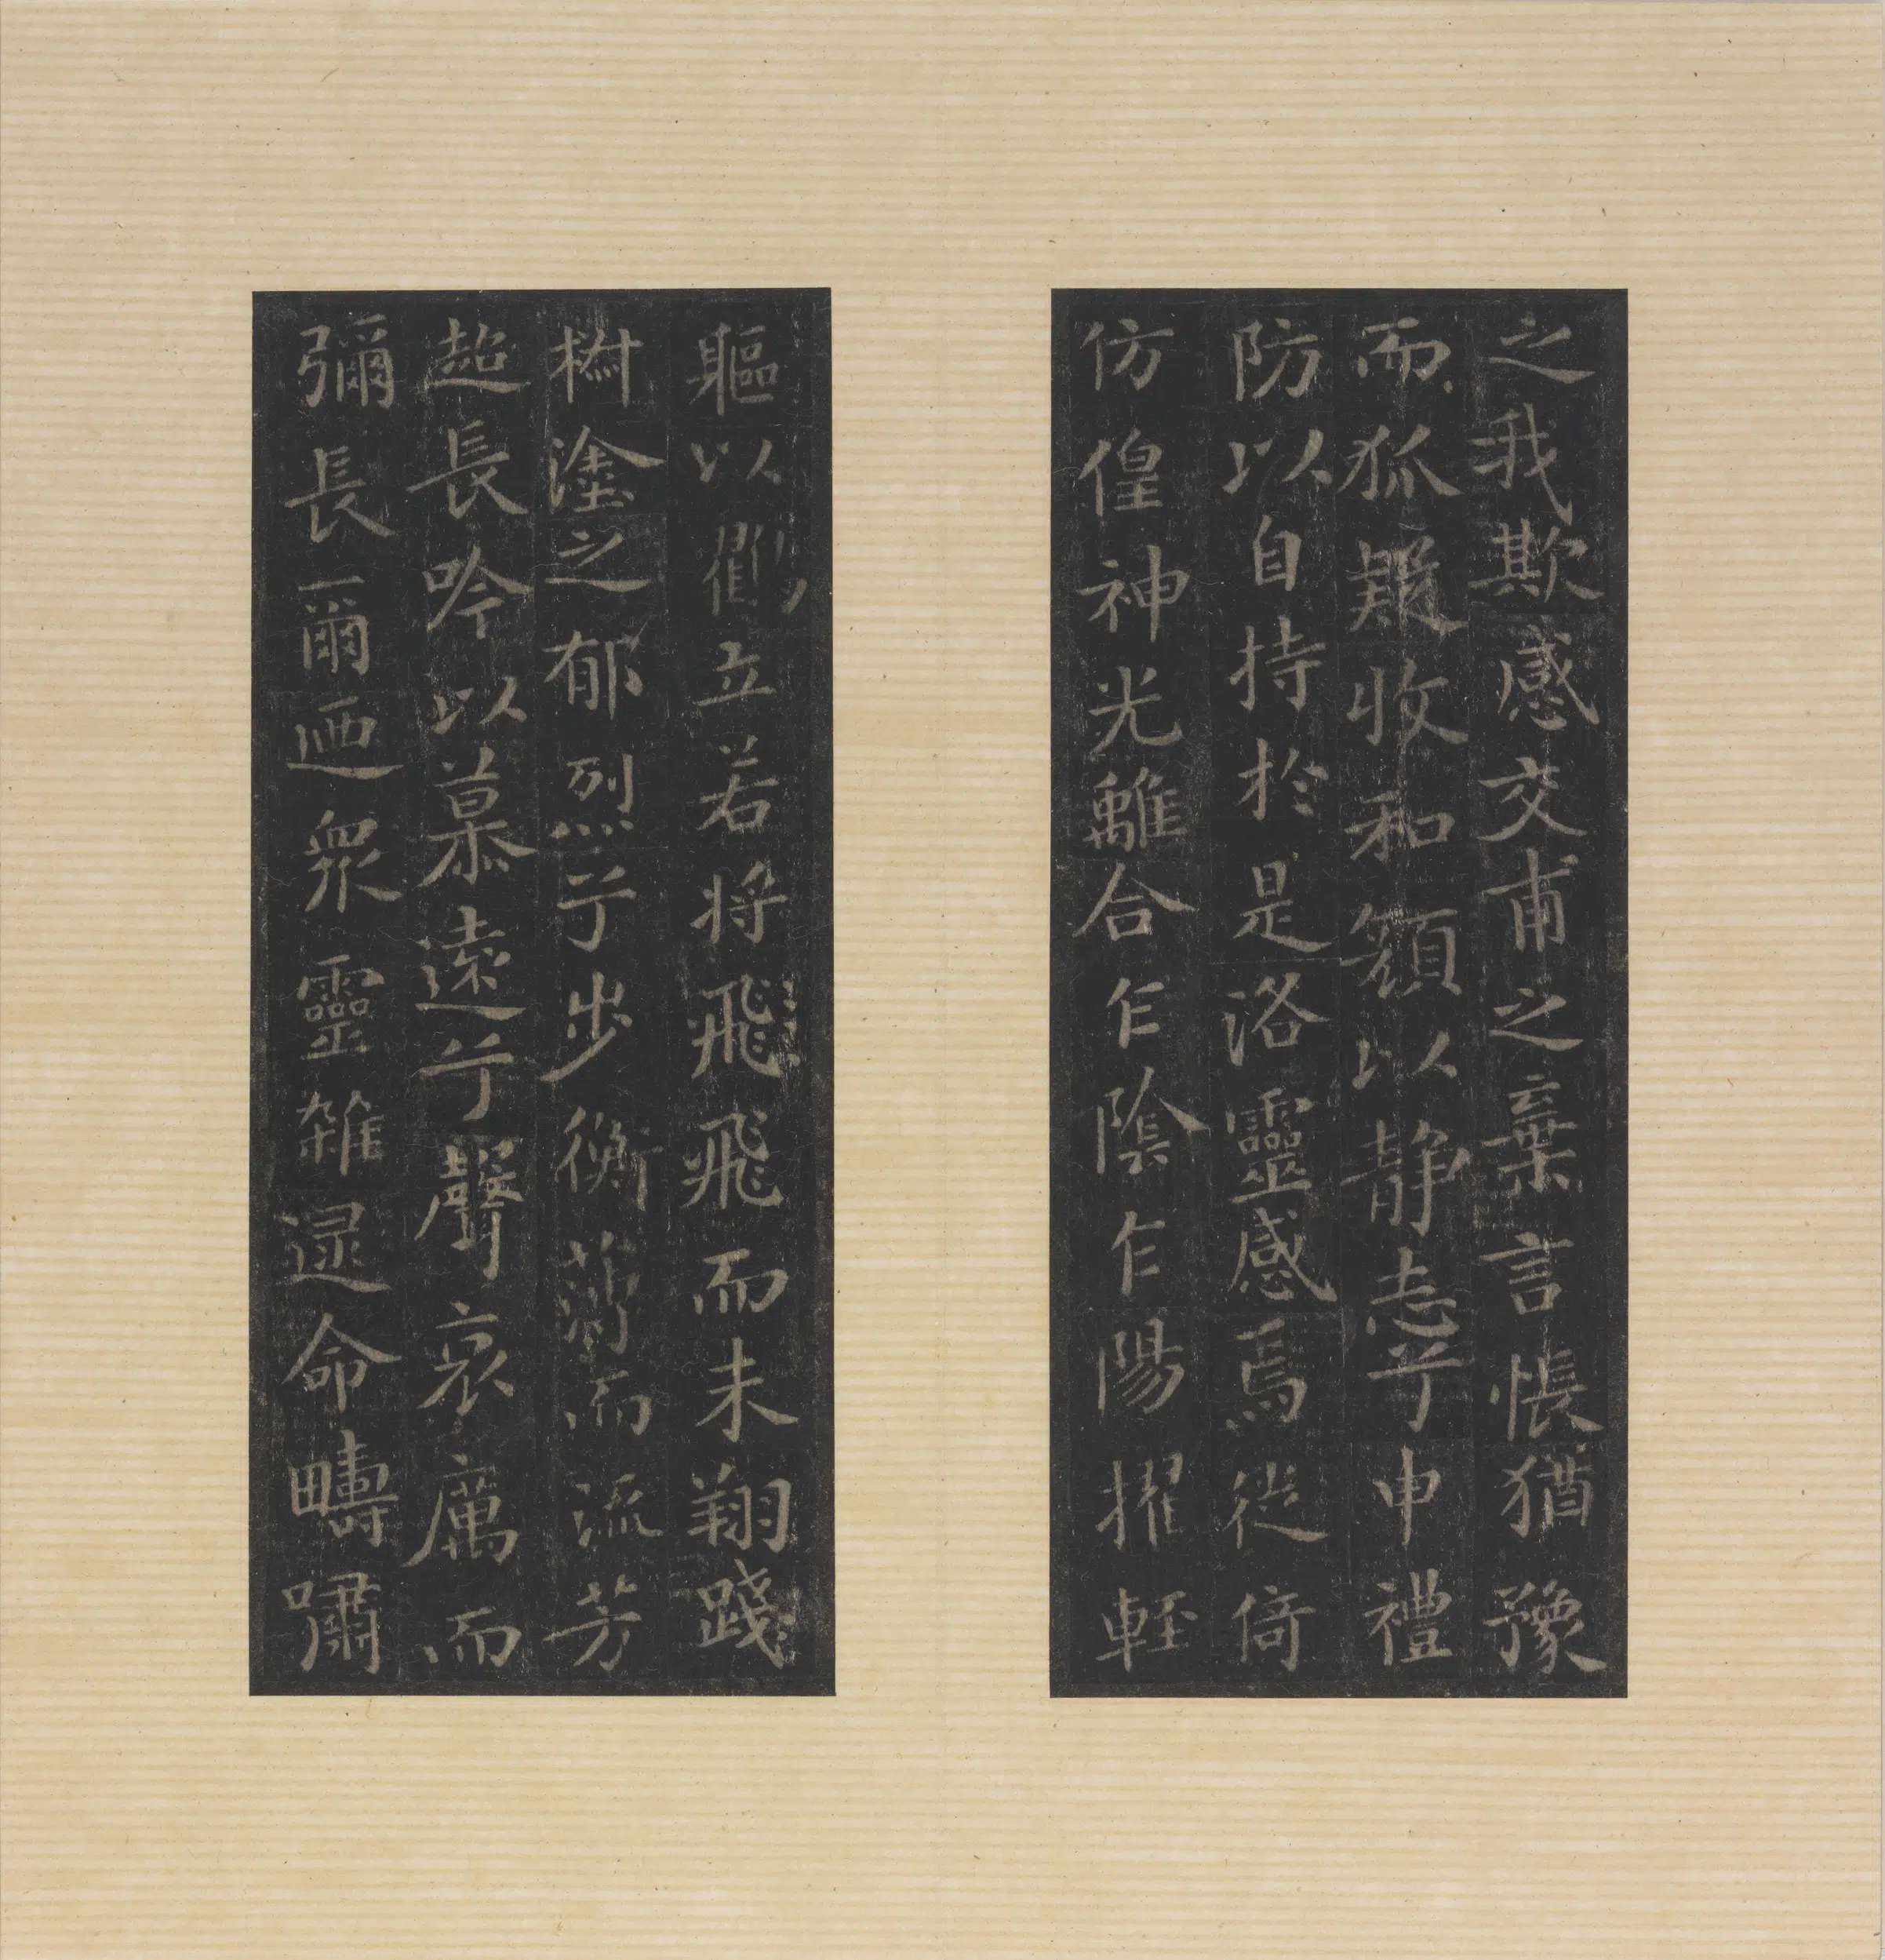 之我欺感交甫之棄言悵猶豫
而狐疑收和顏以静志兮申禮
防以自持於是洛靈感焉徙倚
仿偟神光離合乍陰乍陽擢輕
軀以鶴立若將飛飛而未翔踐
椒塗之郁烈兮步衡薄而流芳
超長吟以慕遠兮聲哀厲而
彌長爾迺衆靈雜遝命疇嘯